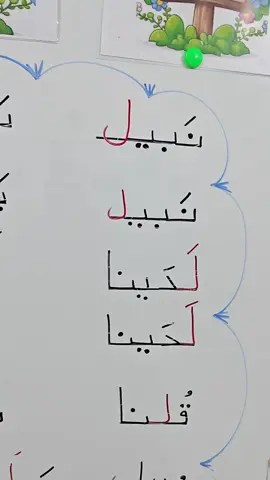 نَبيل
نَبيل
لَحَينا
لَحَينا
قُلنا